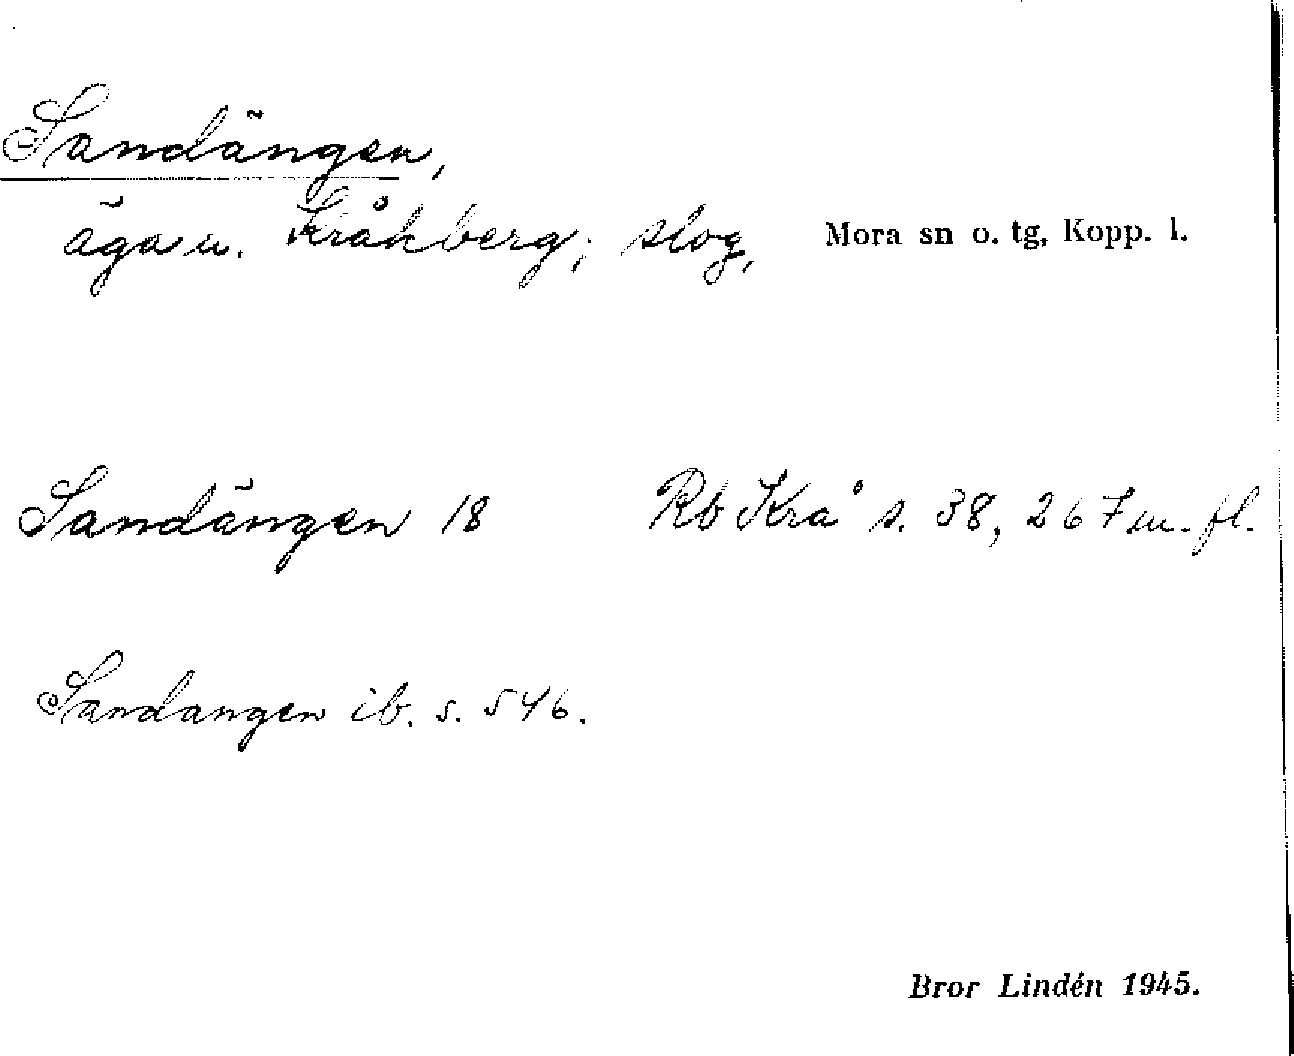 Sandängen,
äga u. Kråkberg; slog, Mora sn o. tg, Kopp. l.
Sandängen 18 Rb Krå s. 38, 267 m. fl.
Sandangen ib. s. 546.
Bror Lindén 1945.